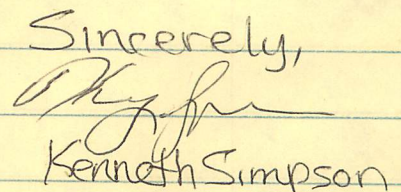 Sincerely,
Kenneth Simpson